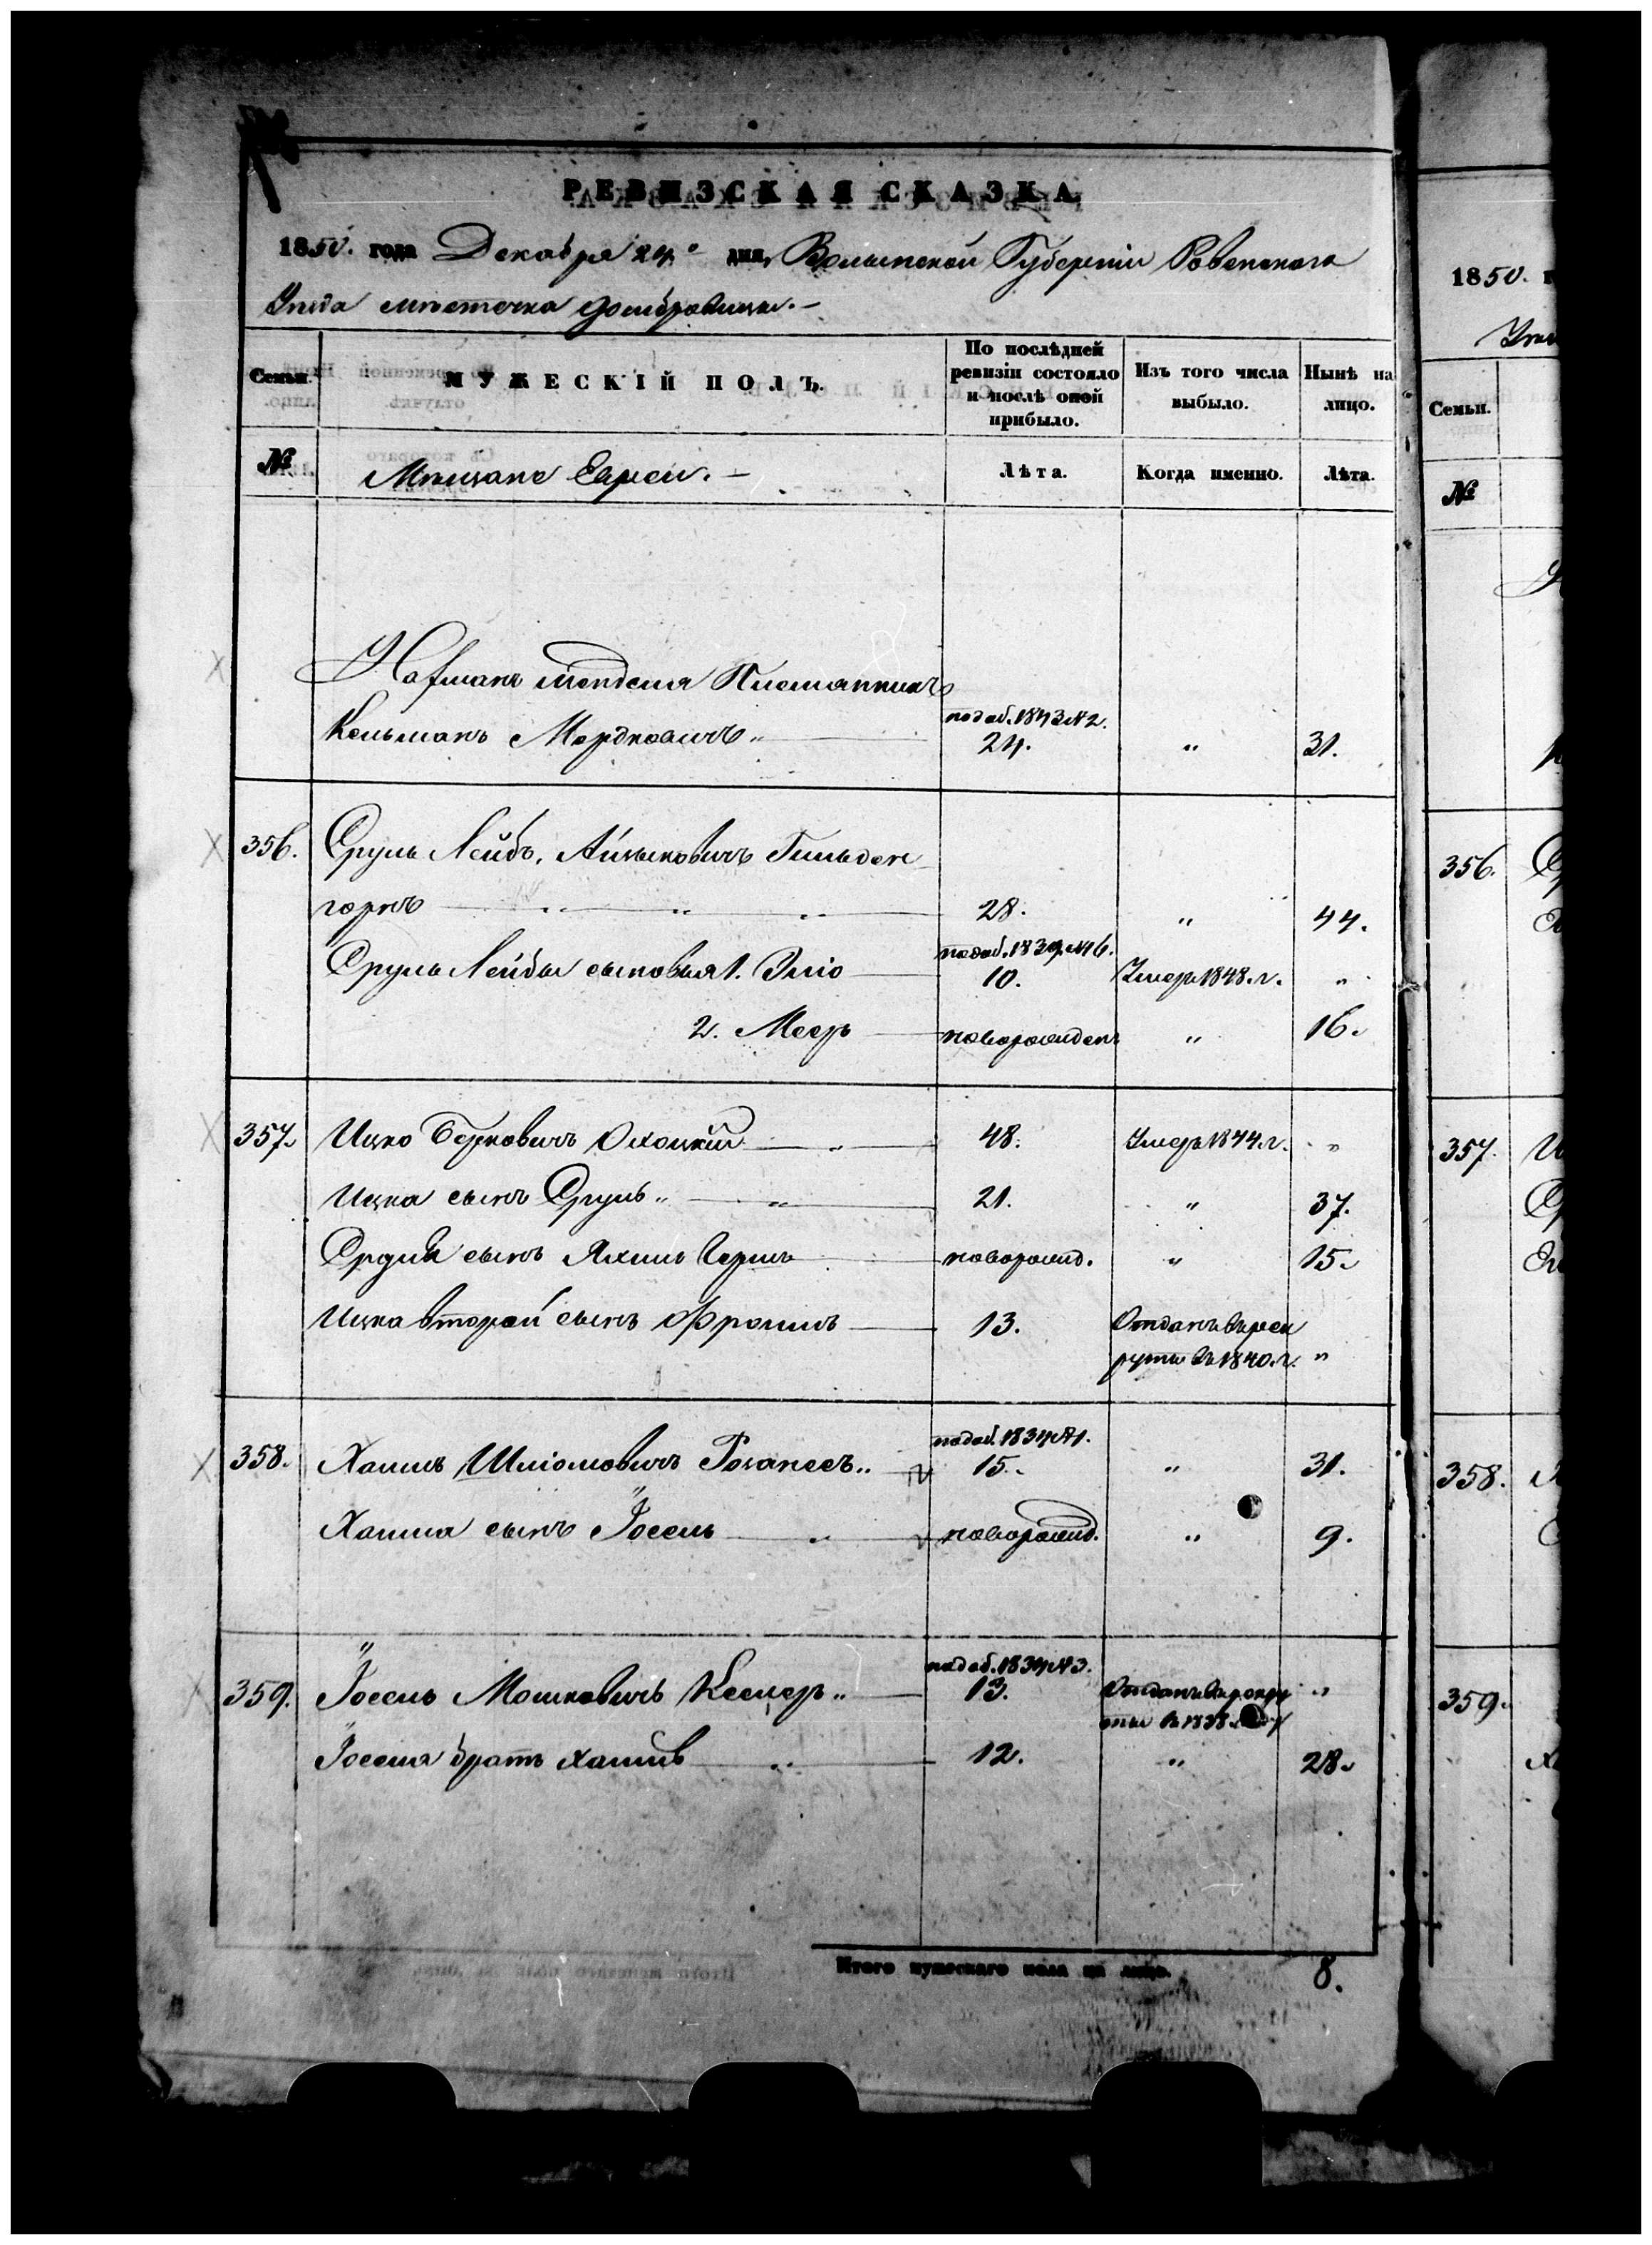 РЕВИЗСКАЯ СКАЗКА
1850. года Декабря 24го дня, Волынской Губерніи Ровенскаго
Уезда местечка Домбровицы.-
Семьи. МУЖЕСКІЙ ПОЛЪ. По послѣдней ревизіи состояло и послѣ оной прибыло. Изъ того числа выбыло. Нынѣ на лицо.
№ Мещане Евреи.- Лѣта. Когда именно. Лѣта.
Менделя Племянникъ
Кельманъ Мордковичъ„ подоб. 1843 №2. 24. „ 31.
356. Сруль Лейбъ. Айзыковичъ Гильден
горнъ 28. „ 44.
Сруль Лейбы сыновья 1. Эліо подоб. 1834. №6. 10. Умеръ 1848. г. „
2. Меер новорожденъ „ 16.
357. Ицко Берковичъ Олоцкий 48. Умеръ 1844. г. „
Ицка сынъ Сруль„ 21. „ 37.
Сруля сынъ Герш новорожд. „ 15.
Ицка второй сынъ Фроимъ 13. Отданъ в рек
руты въ 1840. г. „
358. Хаимъ Шліомовичъ „ подоб. 1834 №1. 15. „ 31.
Хаима сынъ Іосель новорожд. „ 9.
359. Іосель Мошковичъ Кеслер„ подоб. 1834 №3. 13. Отданъ в рекру
ты в 1838. „
Іоселя братъ Хаимъ 12. „ 28.
Итого мужескаго пола на лицо. 8.
1850.
Семьи.
№
356.
357.
358.
359.